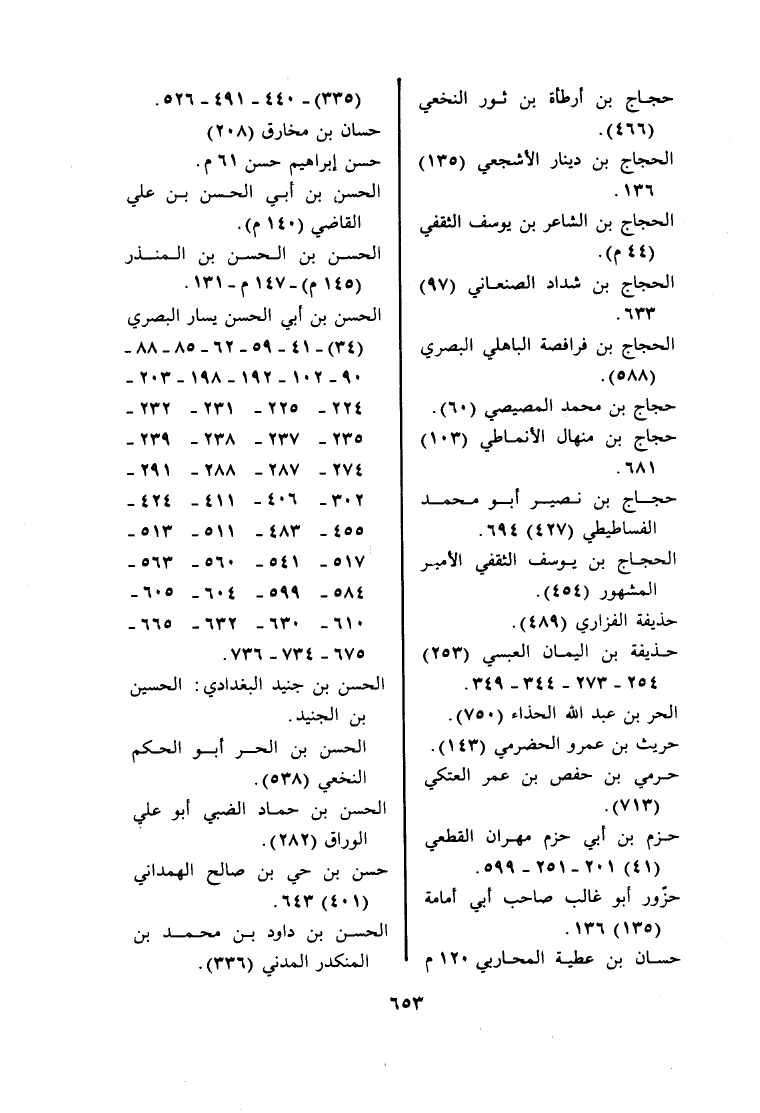 حجاج بن أرطأة بن ثور النخعي
(٤٦٦).
الحجاج بن دينار الأشجعي (١٣٥)
١٣٦.
الحجاج بن الشاعر بن يوسف الثقفي
(٤٤ م).
الحجاج بن شداد الصنعاني (٩٧)
٦٣٣.
الحجاج بن فرافصة الباهلي البصري
(٥٨٨).
حجاج بن محمد المصيصي (٦٠).
حجاج بن منهال الأنماطي (١٠٣)
٦٨١.
حجاج بن نصير أبو محمد
الفساطيطي (٤٢٧) ٦٩٤.
الحجاج بن يوسف الثقفي الأمير
المشهور (٤٥٤).
حذيفة الفزاري (٤٨٩).
حذيفة بن اليمان العبسي (٢٥٣)
٢٥٤ - ٢٧٣ - ٣٤٤ - ٣٤٩.
الحر بن عبد الله الحذاء (٧٥٠).
حريث بن عمرو الحضرمي (١٤٣).
حرمي بن حفص بن عمر العتكي
(٧١٣).
حزم بن أبي حزم مهران القطعي
(٤١) ٢٠١ - ٢٥١ - ٥٩٩.
حزّور أبو غالب صاحب أبي أمامة
(١٣٥) ١٣٦.
حسان بن عطية المحاربي ١٢٠ م
(٣٣٥) - ٤٤٠ - ٤٩١ - ٥٢٦.
حسان بن مخارق (٢٠٨)
حسن إبراهيم حسن ٦١ م.
الحسن بن أبي الحسن بن علي
القاضي (١٤٠ م).
الحسن بن الحسن بن المنذر
(١٤٥ م) - ١٤٧ م - ١٣١.
الحسن بن أبي الحسن يسار البصري
(٣٤) - ٤١ - ٥٩ - ٦٢ - ٨٥ - ٨٨ -
٩٠ - ١٠٢ - ١٩٢ - ١٩٨ - ٢٠٣ -
٢٢٤ - ٢٢٥ - ٢٣١ - ٢٣٢ -
٢٣٥ - ٢٣٧ - ٢٣٨ - ٢٣٩ -
٢٧٤ - ٢٨٧ - ٢٨٨ - ٢٩١ -
٣٠٢ - ٤٠٦ - ٤١١ - ٤٢٤ -
٤٥٥ - ٤٨٣ - ٥١١ - ٥١٣ -
٥١٧ - ٥٤١ - ٥٦٠ - ٥٦٣ -
٥٨٤ - ٥٩٩ - ٦٠٤ - ٦٠٥ -
٦١٠ - ٦٣٠ - ٦٣٢ - ٦٦٥ -
٦٧٥ - ٧٣٤ - ٧٣٦.
الحسن بن جنيد البغدادي: الحسين
بن الجنيد.
الحسن بن الحر أبو الحكم
النخعي (٥٣٨).
الحسن بن حماد الضبي أبو علي
الوراق (٢٨٢).
حسن بن حي بن صالح الهمداني
(٤٠١) ٦٤٣.
الحسن بن داود بن محمد بن
المنكدر المدني (٣٣٦).
٦٥٣